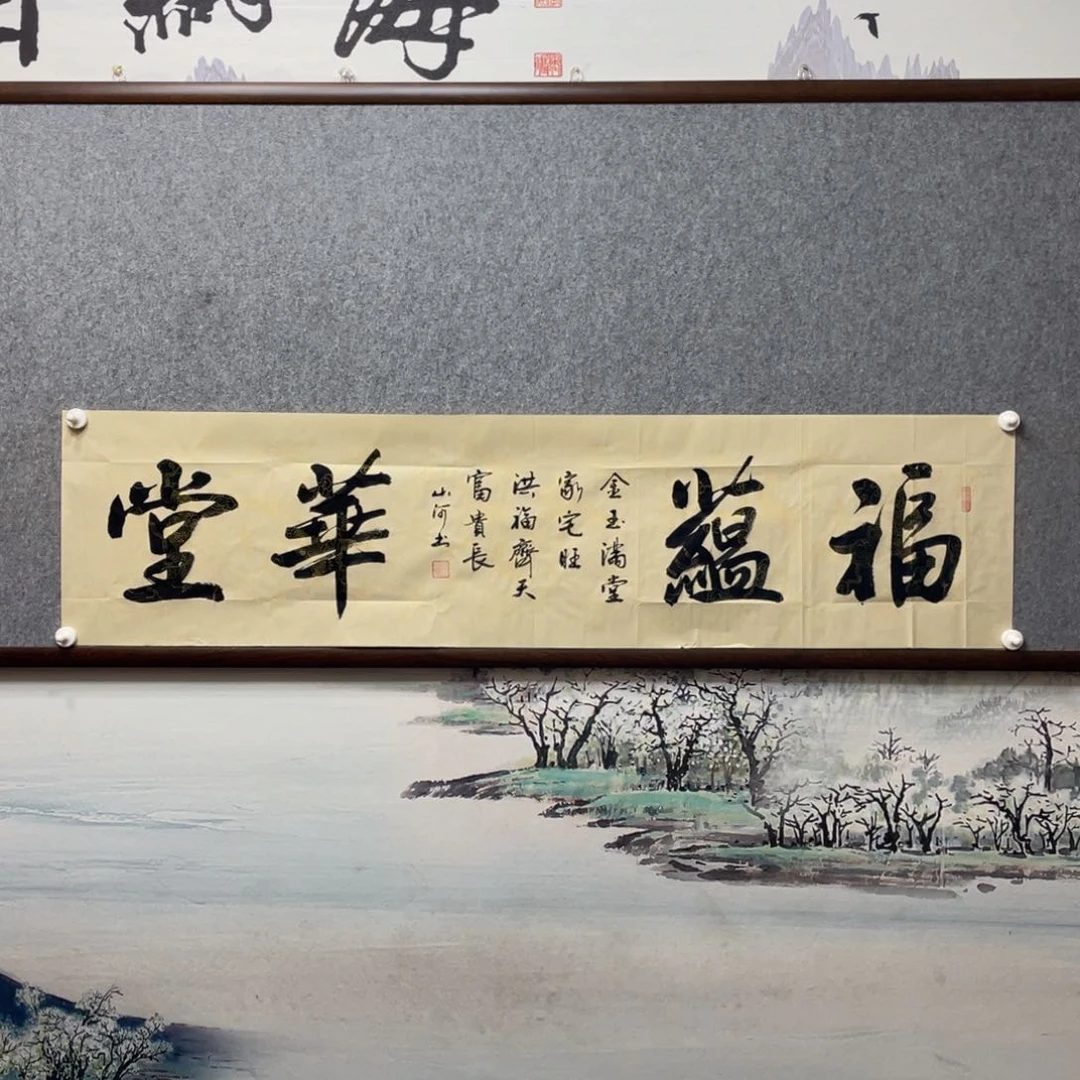 海納百
福蘊華堂
金玉滿堂
家宅旺
洪福齊天
富貴長
山河书